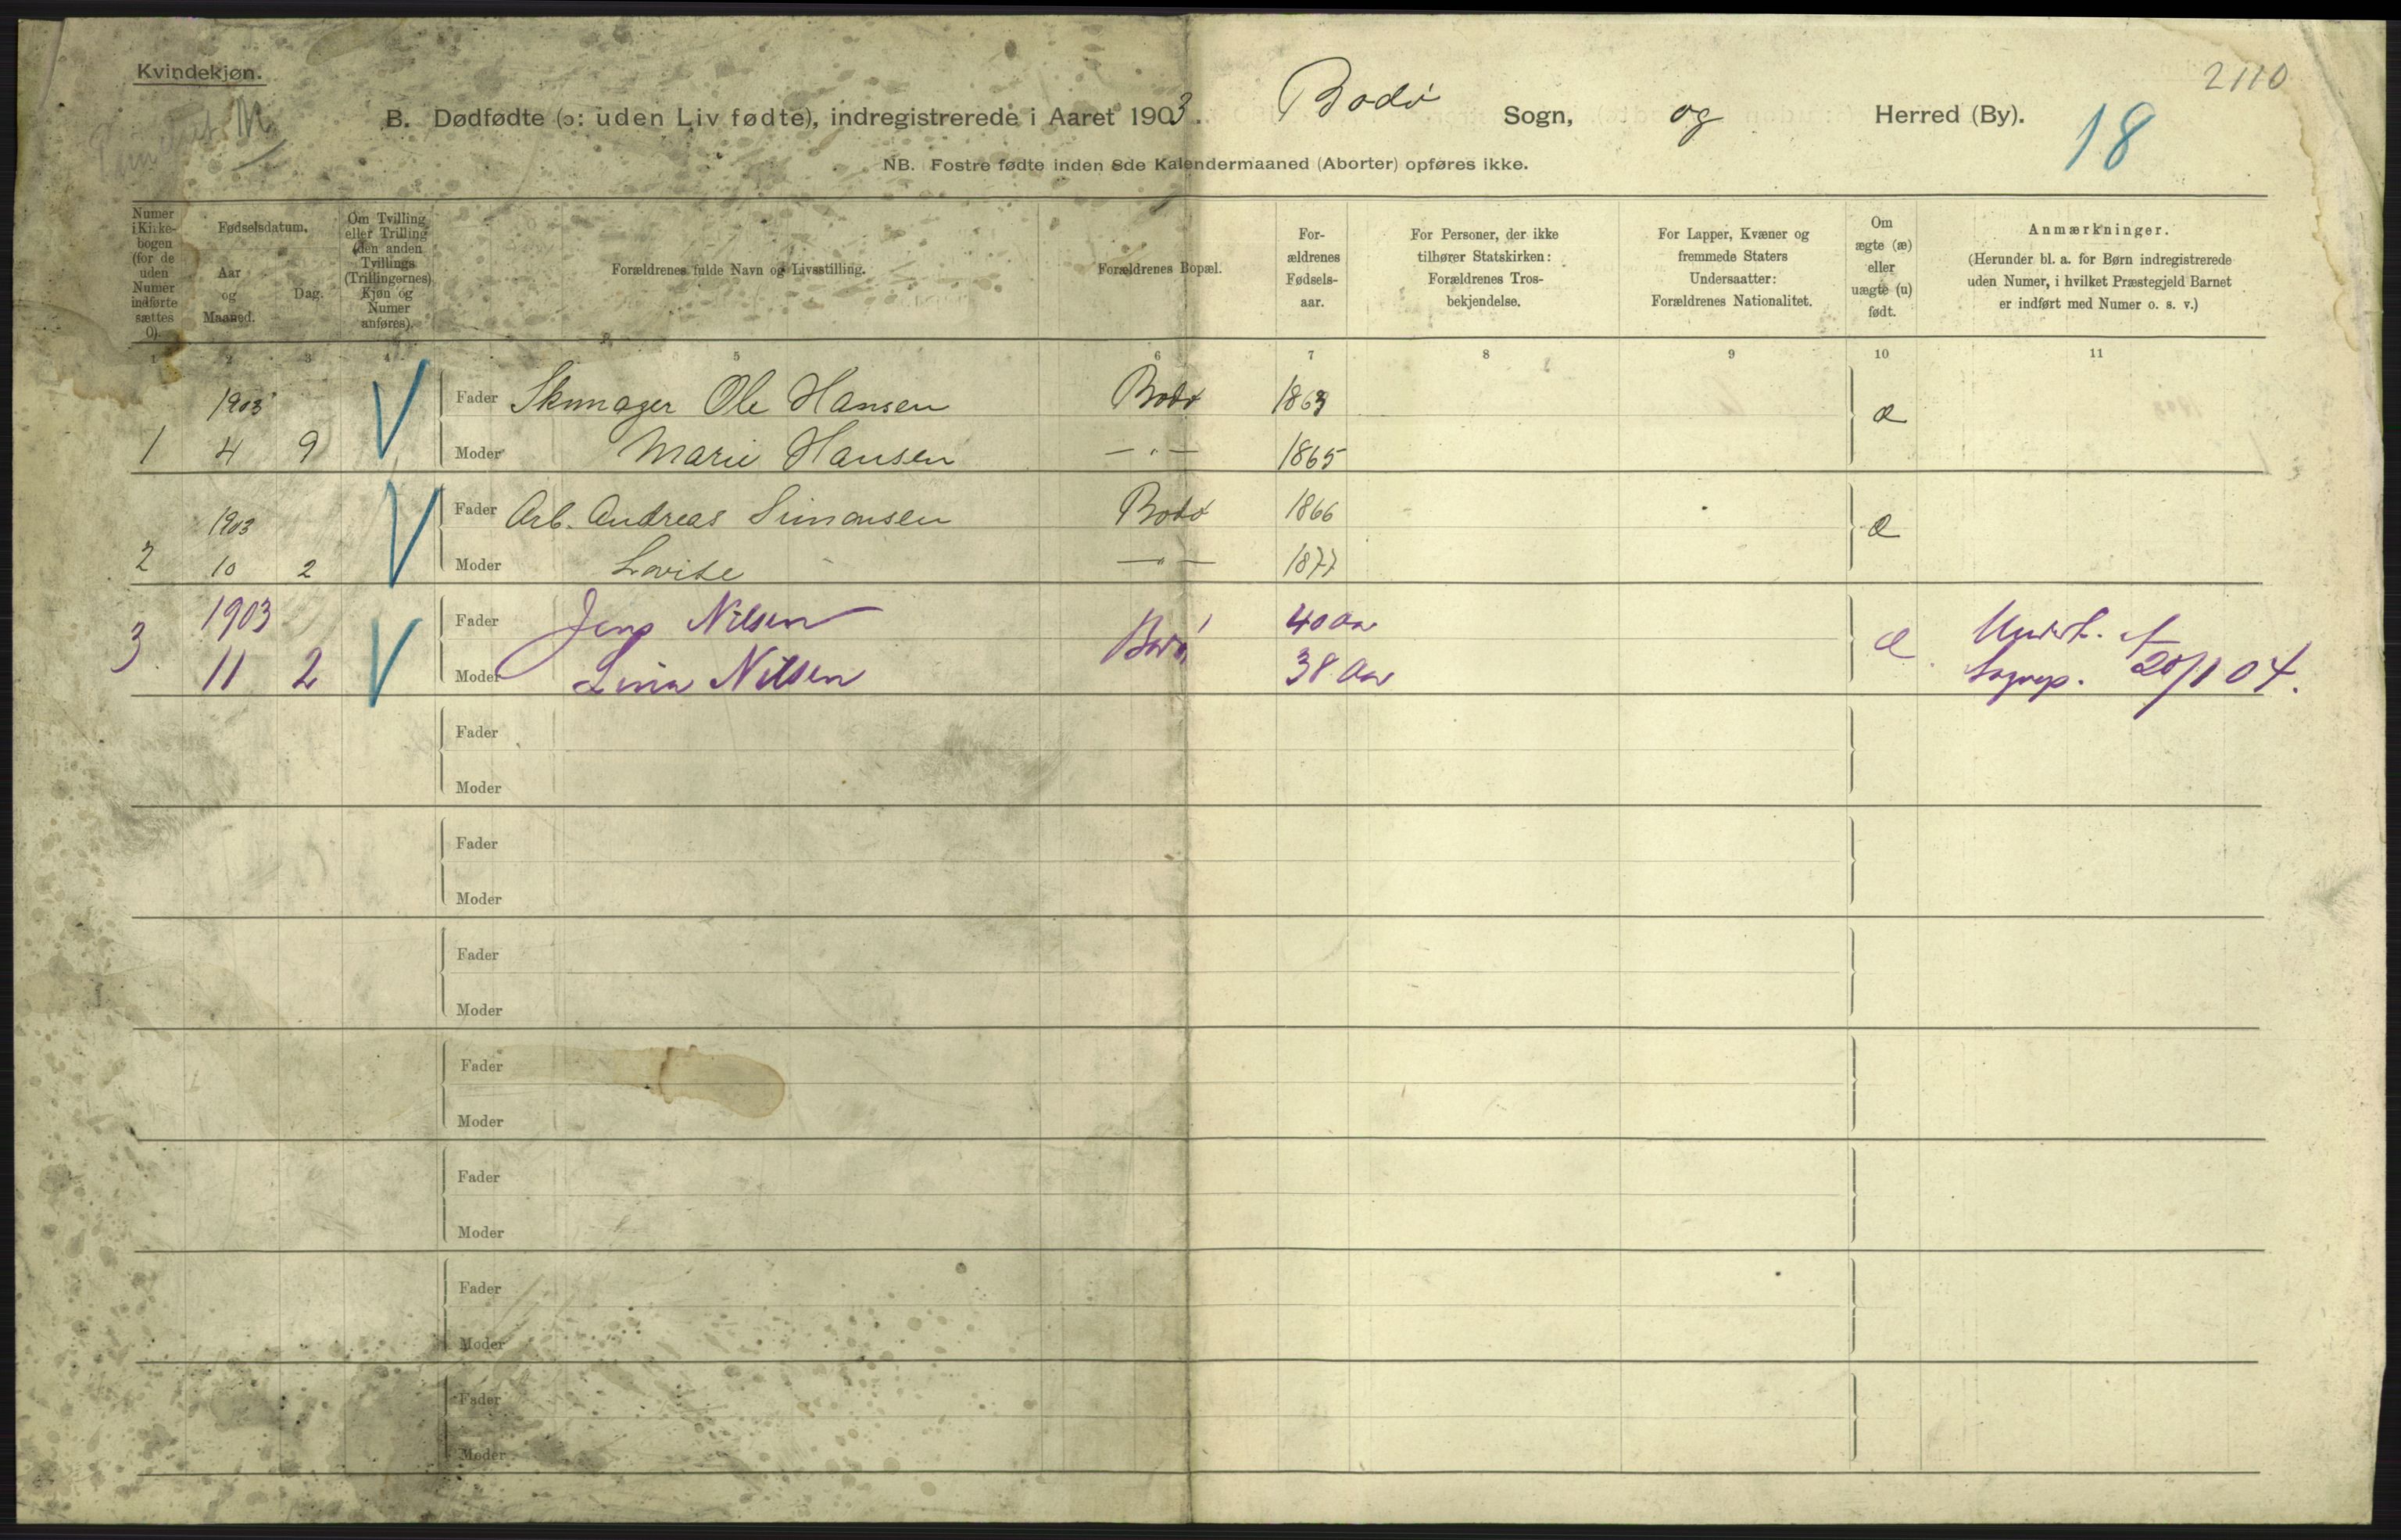 Kvindekjøn.
2110
B. Dødfødte (ɔ: uden Liv fødte), indregistrerede i Aaret 1903. Bodø Sogn, og Herred (By).
18
NB. Fostre fødte inden 8de Kalendermaaned (Aborter) opføres ikke.
Numer i Kirkebogen (for de uden Numer indførte sættes 0).
Fødselsdatum.
Aar og Maaned.
Dag.
Om Tvilling eller Trilling (den anden Tvillings (Trillingernes) Kjøn og Numer anføres).
Forældrenes fulde Navn og Livsstilling.
Forældrenes Bopæl.
For-ældrenes Fødsels-aar.
For Personer, der ikke tilhører Statskirken: Forældrenes Tros-bekjendelse.
For Lapper, Kvæner og fremmede Staters Undersaatter: Forældrenes Nationalitet.
Om ægte (æ) eller uægte (u) født.
Anmærkninger.
(Herunder bl. a. for Børn indregistrerede uden Numer, i hvilket Præstegjeld Barnet er indført med Numer o. s. v.)
1 2 3 4 5 6 7 8 9 10 11
1903 Fader Skomager Ole Hansen Bodø 1863 æ
1 4 9 Moder Marie Hansen — " — 1865
1903 Fader Arb. Andreas Simonsen Bodø 1866 æ
2 10 2 Moder Lovise — " — 1877
3. 1903 Fader Jens Nilsen Bodø 40 Aar æ
11 2 Moder Lina Nilsen 38 Aar 20/1 04.
Fader
Moder
Fader
Moder
Fader
Moder
Fader
Moder
Fader
Moder
Fader
Moder
Fader
Moder